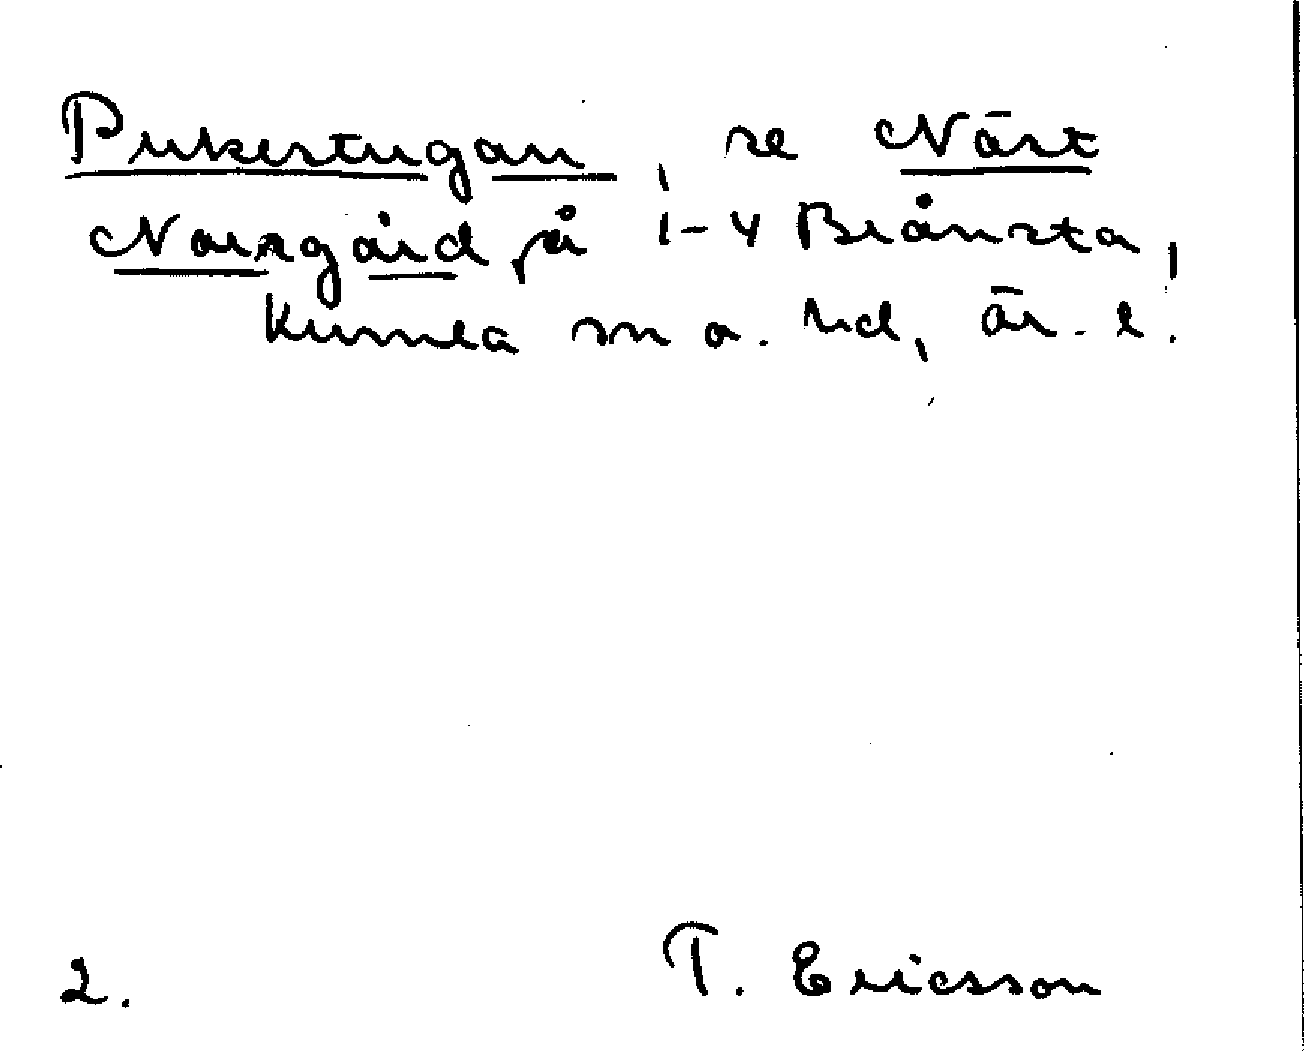 Pukestugan, se Näst
Norrgård på 1-4 Brånsta,
Kumla sn o. hd, är. l.
2. T. Ericsson